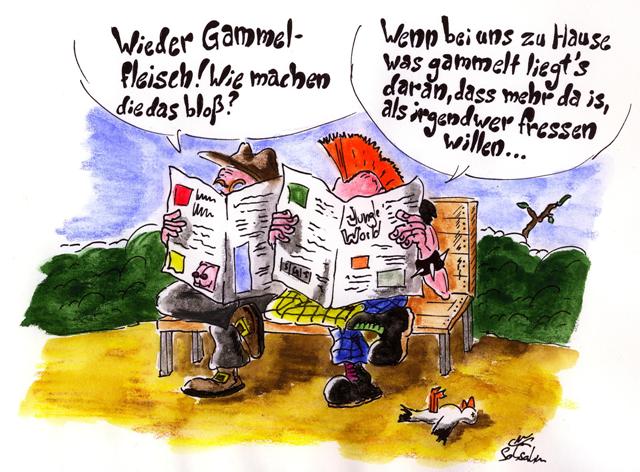 Wieder Gammel-
fleisch! Wie machen
die das bloß?
Wenn bei uns zu Hause
was gammelt liegt's
daran, dass mehr da is,
als irgendwer fressen
willen...
Jungle
World